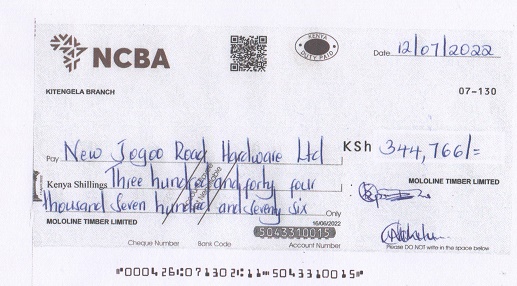 NCBA
KENYA
DUTY PAID
Date 12/07/2022
KITENGELA BRANCH
07-130
Pay New Jogoo Road Hardware Ltd KSh 344,766/=
Kenya Shillings Three hundred and forty four
MOLOLINE TIMBER LIMITED
thousand Seven hundred and seventy six Only
MOLOLINE TIMBER LIMITED
16/06/2022
5043310015
Cheque Number Bank Code Account Number
Please DO NOT write in the space below
⑈000426⑆07130211⑈5043310015⑈